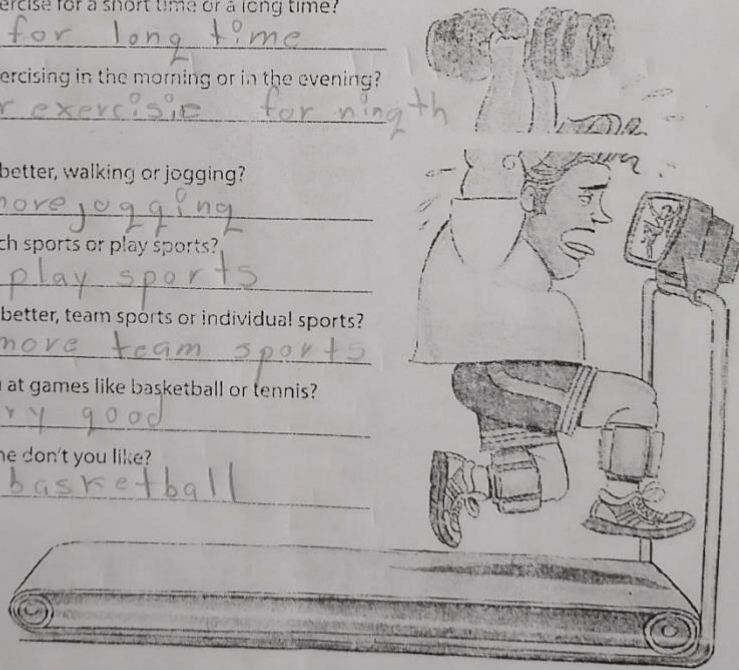 ercise for a short time or a long time?
for long time
ercising in the morning or in the evening?
r exercisie for ningth
better, walking or jogging?
more jogging
ch sports or play sports?
play sports
better, team sports or individual sports?
more team sports
at games like basketball or tennis?
ry good
me don't you like?
basketball